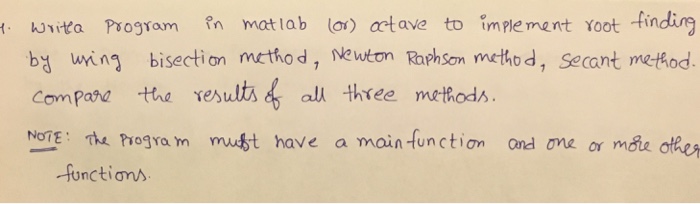 1. Write a Program in matlab (or) octave to implement root finding
by using bisection method, Newton Raphson method, Secant method.
compare the results of all three methods.
NOTE: The Program must have a main function and one or more other
functions.